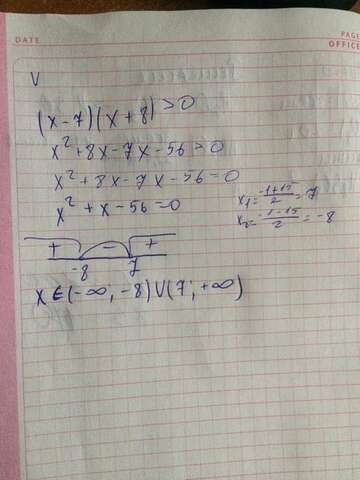 DATE
PAGE
OFFICE
V
(x-7)(x+8)>0
x²+8x-7x-56>0
x²+8x-7x-56=0
x²+x-56=0
x₁=(-1+15)/2=7
x₂=(-1-15)/2=-8
+ - +
-8 7
x∈(-∞,-8)∪(7;+∞)